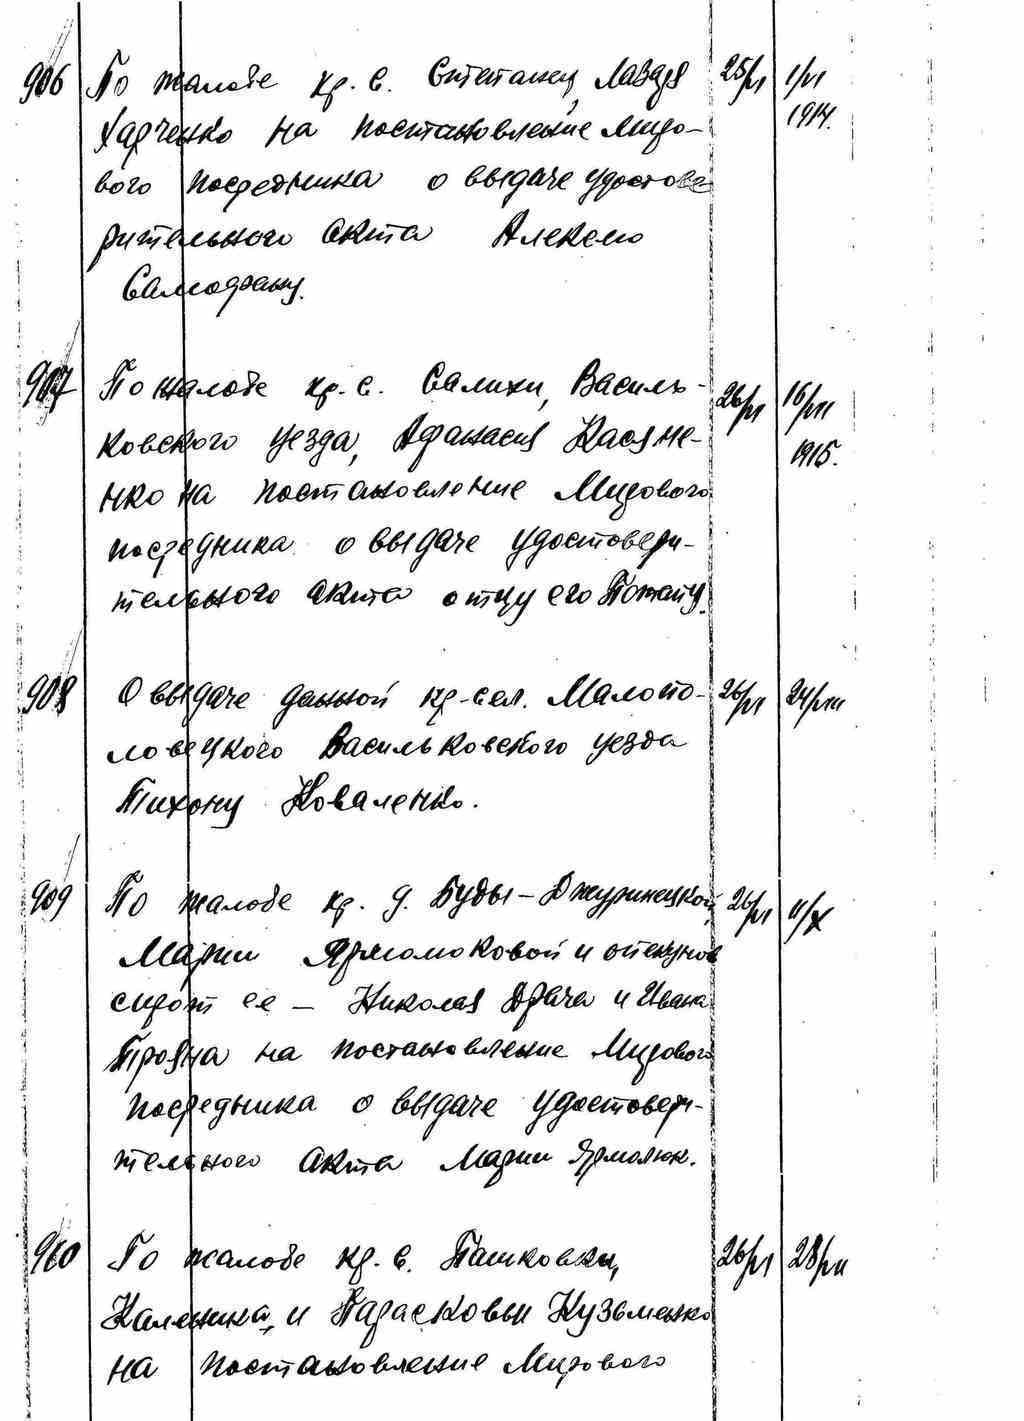 906 По жалобе кр. с. Степанец, Лазаря 25/VI 1/VI
Харченко на постановление Миро- 1914.
вого посредника о выдаче удостове
рительного акта Алексею
Самодрану.
907 По жалобе кр. с. Салихи, Василь- 26/VI 16/VII
ковского уезда, Афанасия Касяне- 1915.
нко на постановление Мирового
посредника о выдаче удостовери-
тельного акта отцу его Потапу.
908 О выдаче данной кр-сел. Малопо- 26/VI 24/VIII
ловецкого Васильковского уезда
Тихону Коваленко.
909 По жалобе кр. д. Буды-Джуринецкой 26/VI 11/X
Марии Ярмолюковой и опекунов
сирот ее - Николая Драча и Ивана
Трояна на постановление Мирового
посредника о выдаче удостовери-
тельного акта Марии Ярмолюк.
910 По жалобе кр. с. Пашковки, 26/VI 28/VII
Каленика и Парасковьи Кузьменко
на постановление Мирового